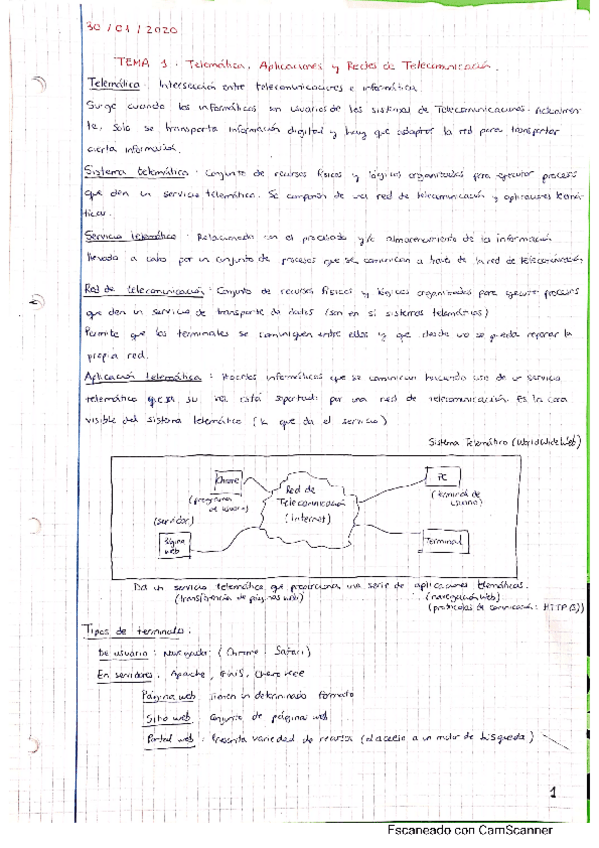 30/01/2020
TEMA 1. Telemática, Aplicaciones y Redes de Telecomunicación.
Telemática: Intersección entre telecomunicaciones e informática.
Surge cuando los informáticos son usuarios de los sistemas de Telecomunicaciones. Actualmen-
te, solo se transporta información digital y hay que adaptar la red para transportar
cierta información.
Sistema telemático: Conjunto de recursos físicos y lógicos organizados para ejecutar procesos
que den un servicio telemático. Se componen de una red de telecomunicación y aplicaciones telemá-
ticas.
Servicio telemático: Relacionado con el procesado y/o almacenamiento de la información
llevado a cabo por un conjunto de procesos que se comunican a través de la red de telecomunicación
Red de telecomunicación: Conjunto de recursos físicos y lógicos organizados para ejecutar procesos
que den un servicio de transporte de datos (son en sí sistemas telemáticos)
Permite que los terminales se comuniquen entre ellos y que desde uno se pueda reparar la
propia red.
Aplicación telemática: informáticos que se comunican haciendo uso de un servicio
telemático que a su vez está soportado por una red de telecomunicación. Es la cara
visible del sistema telemático (la que da el servicio)
Sistema Telemático (World Wide Web)
Chrome
(programa de usuario)
Red de
Telecomunicación
(Internet)
PC
(terminal de
usuario)
(servidor)
Página
web
Terminal
Da un servicio telemático que proporciona una serie de aplicaciones telemáticas.
(transferencia de páginas web)
(navegación web)
(protocolos de comunicación: HTTP(S))
Tipos de terminales:
De usuario: Navegador (Chrome, Safari)
En servidores: Apache,
Página web: tienen un determinado formato
Sitio web: Conjunto de página web
Portal web: Presenta variedad de recursos (el acceso a un motor de búsqueda)
1
Escaneado con CamScanner